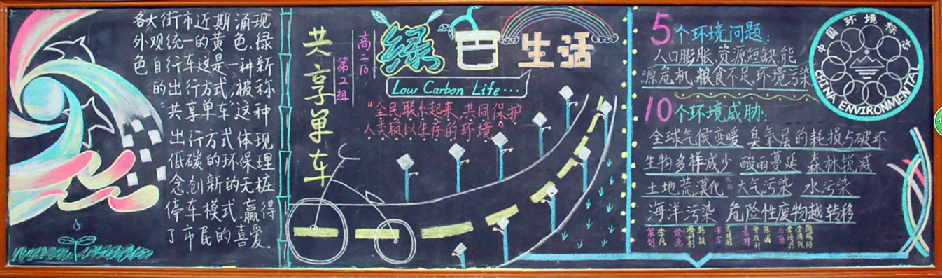 各大街市近期涌现
外观统一的黄色、绿
色自行车这是一种新
的出行方式,被称
"共享单车"这种
出行方式体现
低碳的环保理
念创新的无桩
停车模式,赢得
了市民的喜爱
共享单车
高二
第2组
绿色生活
Low Carbon Life...
"全民联合起来,共同保护
人类赖以生存的环境"
5个环境问题:
人口膨胀、资源短缺、能
源危机、粮食不足、环境污染
10个环境威胁:
全球气候变暖 臭氧层的耗损与破坏
生物多样减少 酸雨蔓延 森林锐减
土地荒漠化 大气污染 水污染
海洋污染 危险性废物越转移
中国环境标志
CHINA ENVIRONMENTAL